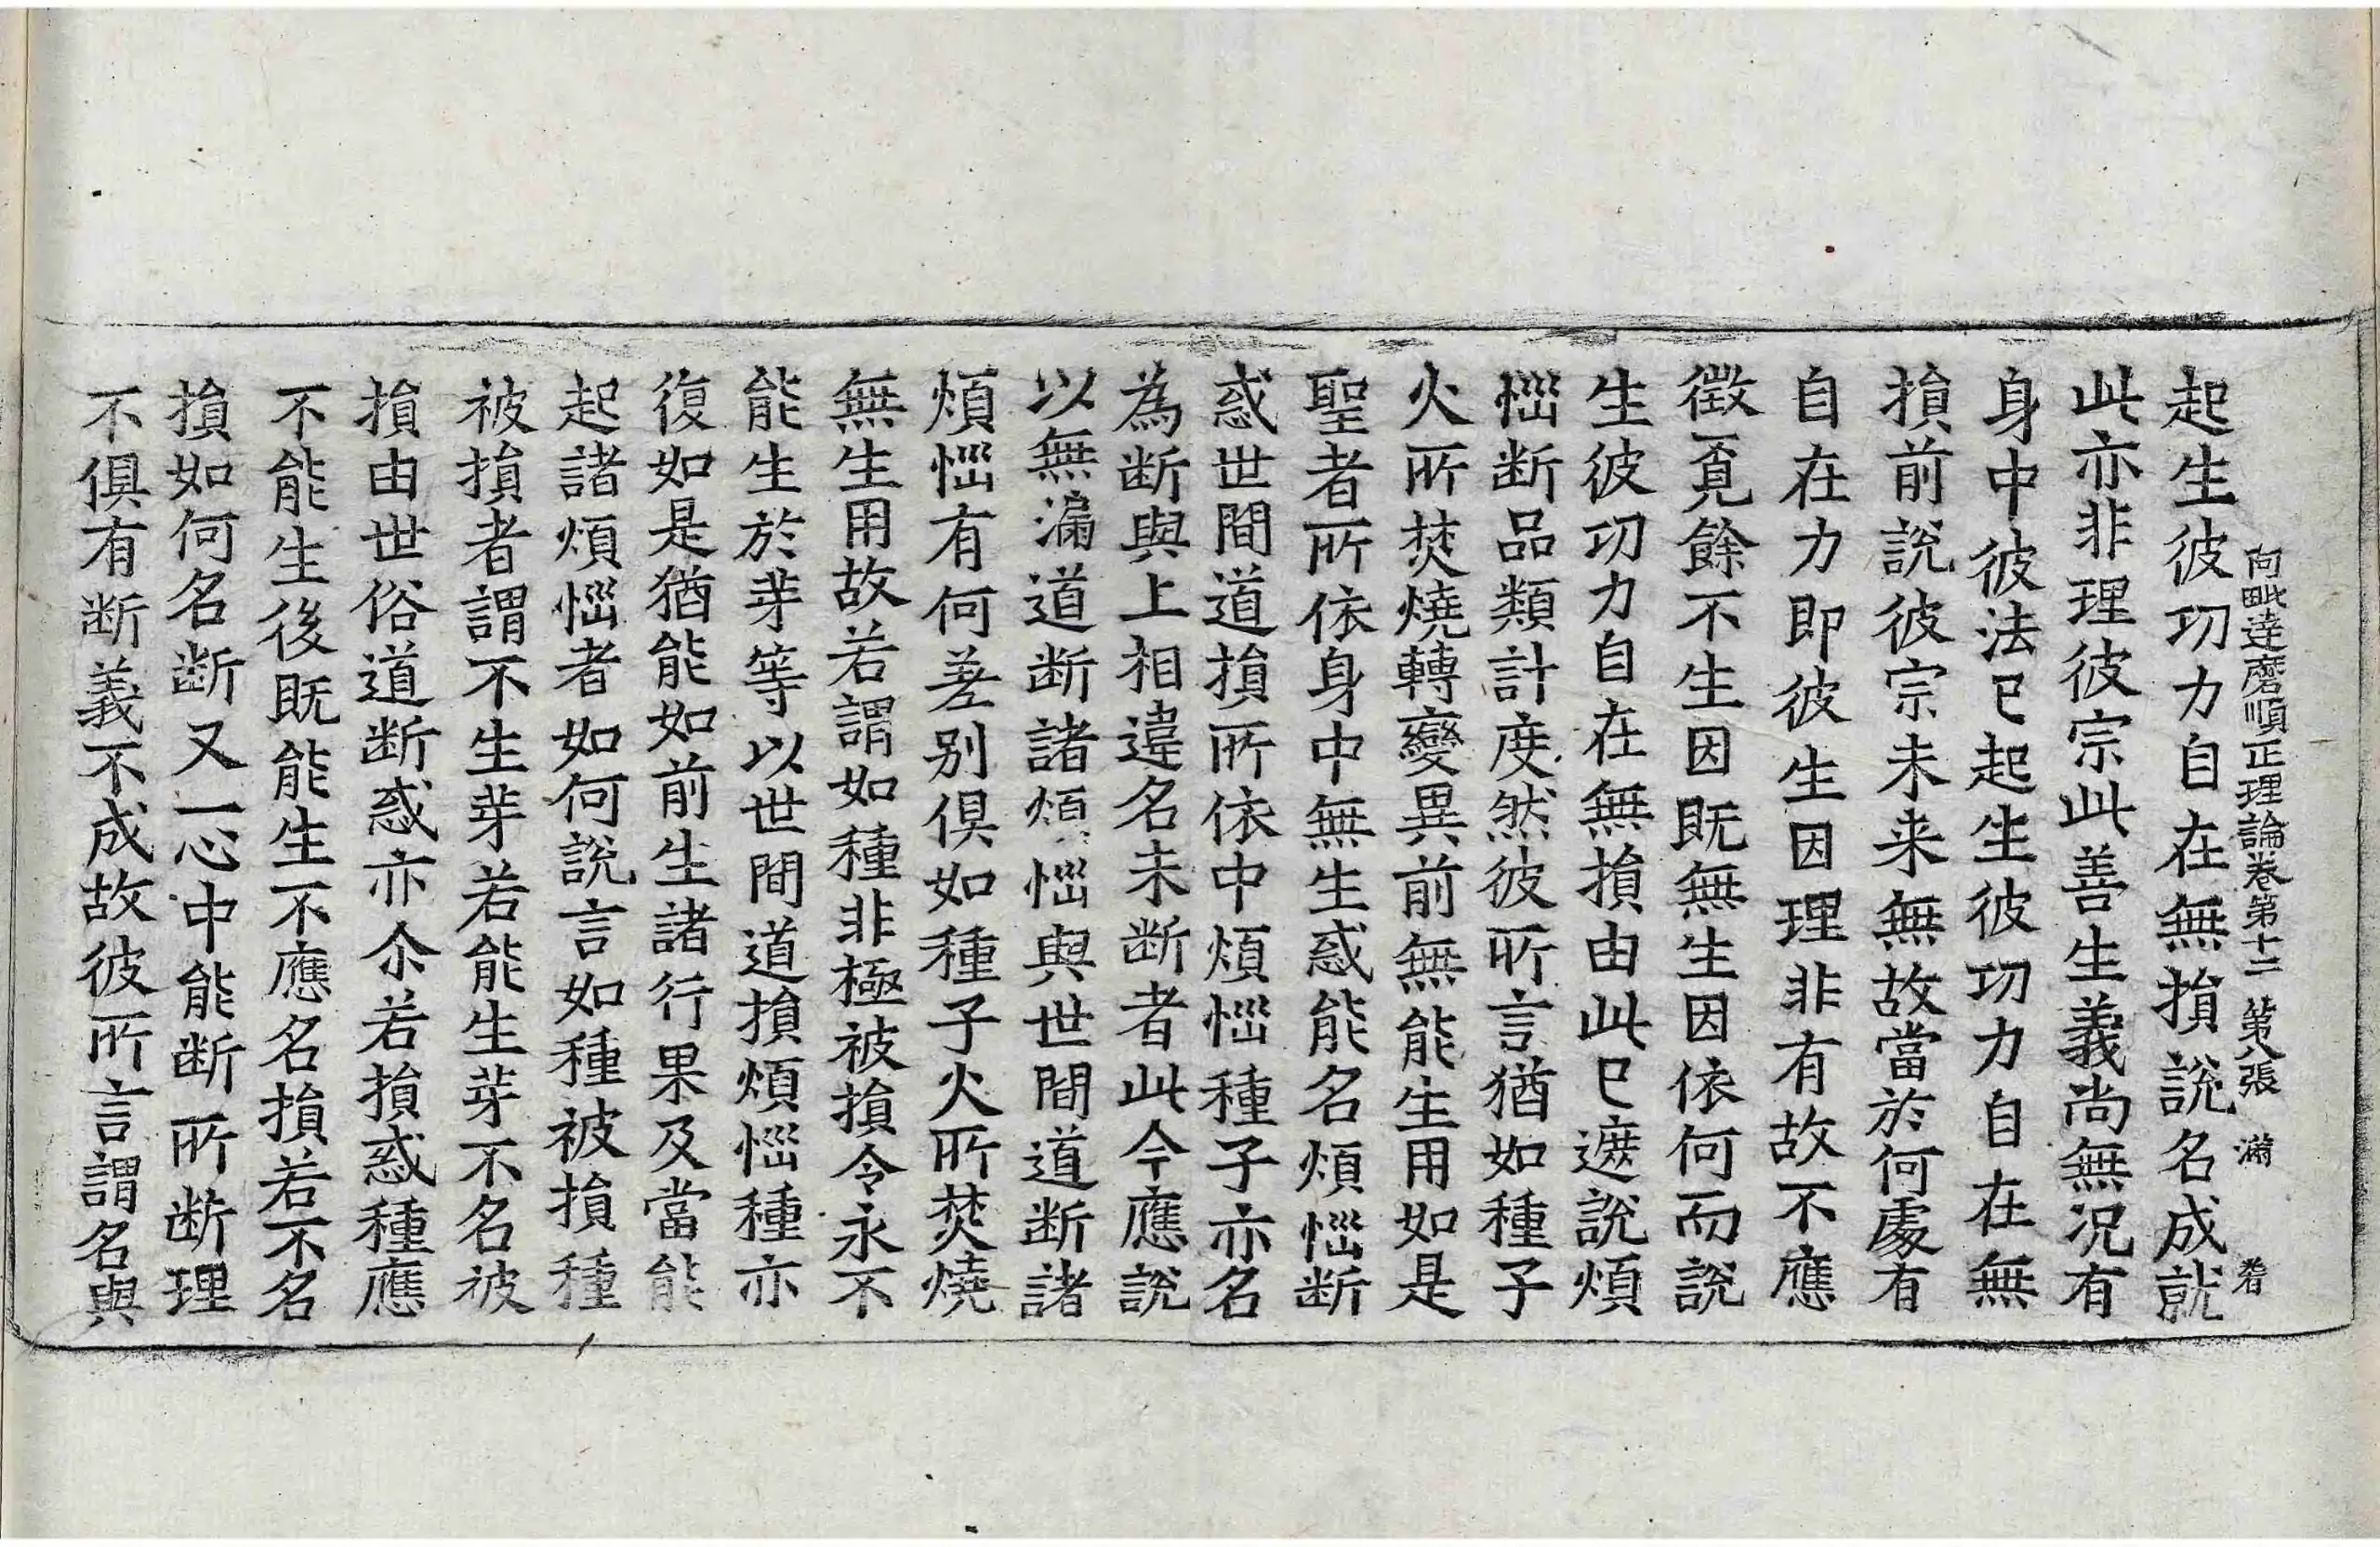 阿毗達磨順正理論卷第十二 第八張 滿
起生彼功力自在無損說名成就
此亦非理彼宗此善生義尚無況有
身中彼法已起生彼功力自在無
損前說彼宗未来無故當於何處有
自在力即彼生因理非有故不應
徵覔餘不生因既無生因依何而說
生彼功力自在無損由此已遮說煩
惱断品類計度然彼所言猶如種子
火所焚燒轉變異前無能生用如是
聖者所依身中無生惑能名煩惱断
惑世間道損所依中煩惱種子亦名
為断與上相違名未断者此今應說
以無漏道断諸煩惱與世間道断諸
煩惱有何差別俱如種子火所焚燒
無生用故若謂如種非極被損令永不
能生於芽等以世間道損煩惱種亦
復如是猶能如前生諸行果及當能
起諸煩惱者如何說言如種被損種
被損者謂不生芽若能生芽不名被
損由世俗道断惑亦尒若損惑種應
不能生後既能生不應名損若不名
損如何名断又一心中能断所断理
不俱有断義不成故彼所言謂名與